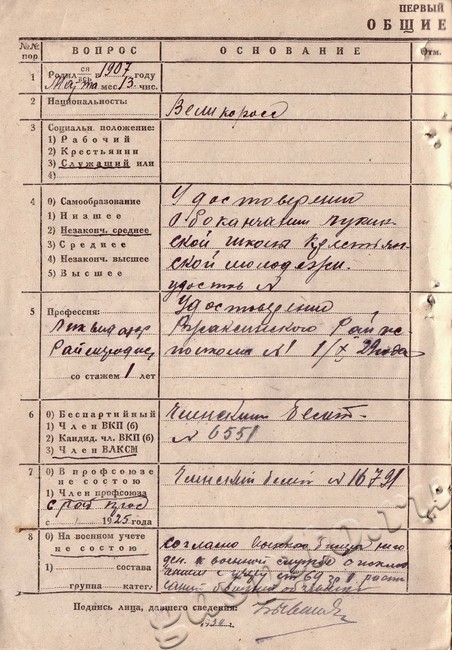 ПЕРВЫЙ
ОБЩИЕ
№№ пор. ВОПРОС ОСНОВАНИЕ Отм.
1 Родил ся ась в 1907 году
Марта мес. 13 чис.
2 Национальность: Великоросс
3 Социальн. положение:
1) Рабочий
2) Крестьянин
3) Служащий или
4)
4 0) Самообразование
1) Низшее
2) Незаконч. среднее
3) Среднее
4) Незаконч. высшее
5) Высшее
Удостоверение
об окончании
ской школы крестьян
ской молодежи.
удостов №
5 Профессия:
Ликвидатор
со стажем 1 лет
Удостоверение
Райис
полкома №1 1/X 29 года
6 0) Беспартийный
1) Член ВКП (б)
2) Кандид. чл. ВКП (б)
3) Член ВЛКСМ
Членский билет
№ 6551
7 0) В профсоюзе
не состою
1) Член профсоюза
с 1925 года
Членский билет № 16791
8 0) На военном учете
не состою
1) состава
группа катег.
согласно
к военной службе
с учета
Подпись лица, давшего сведения:
193 г.